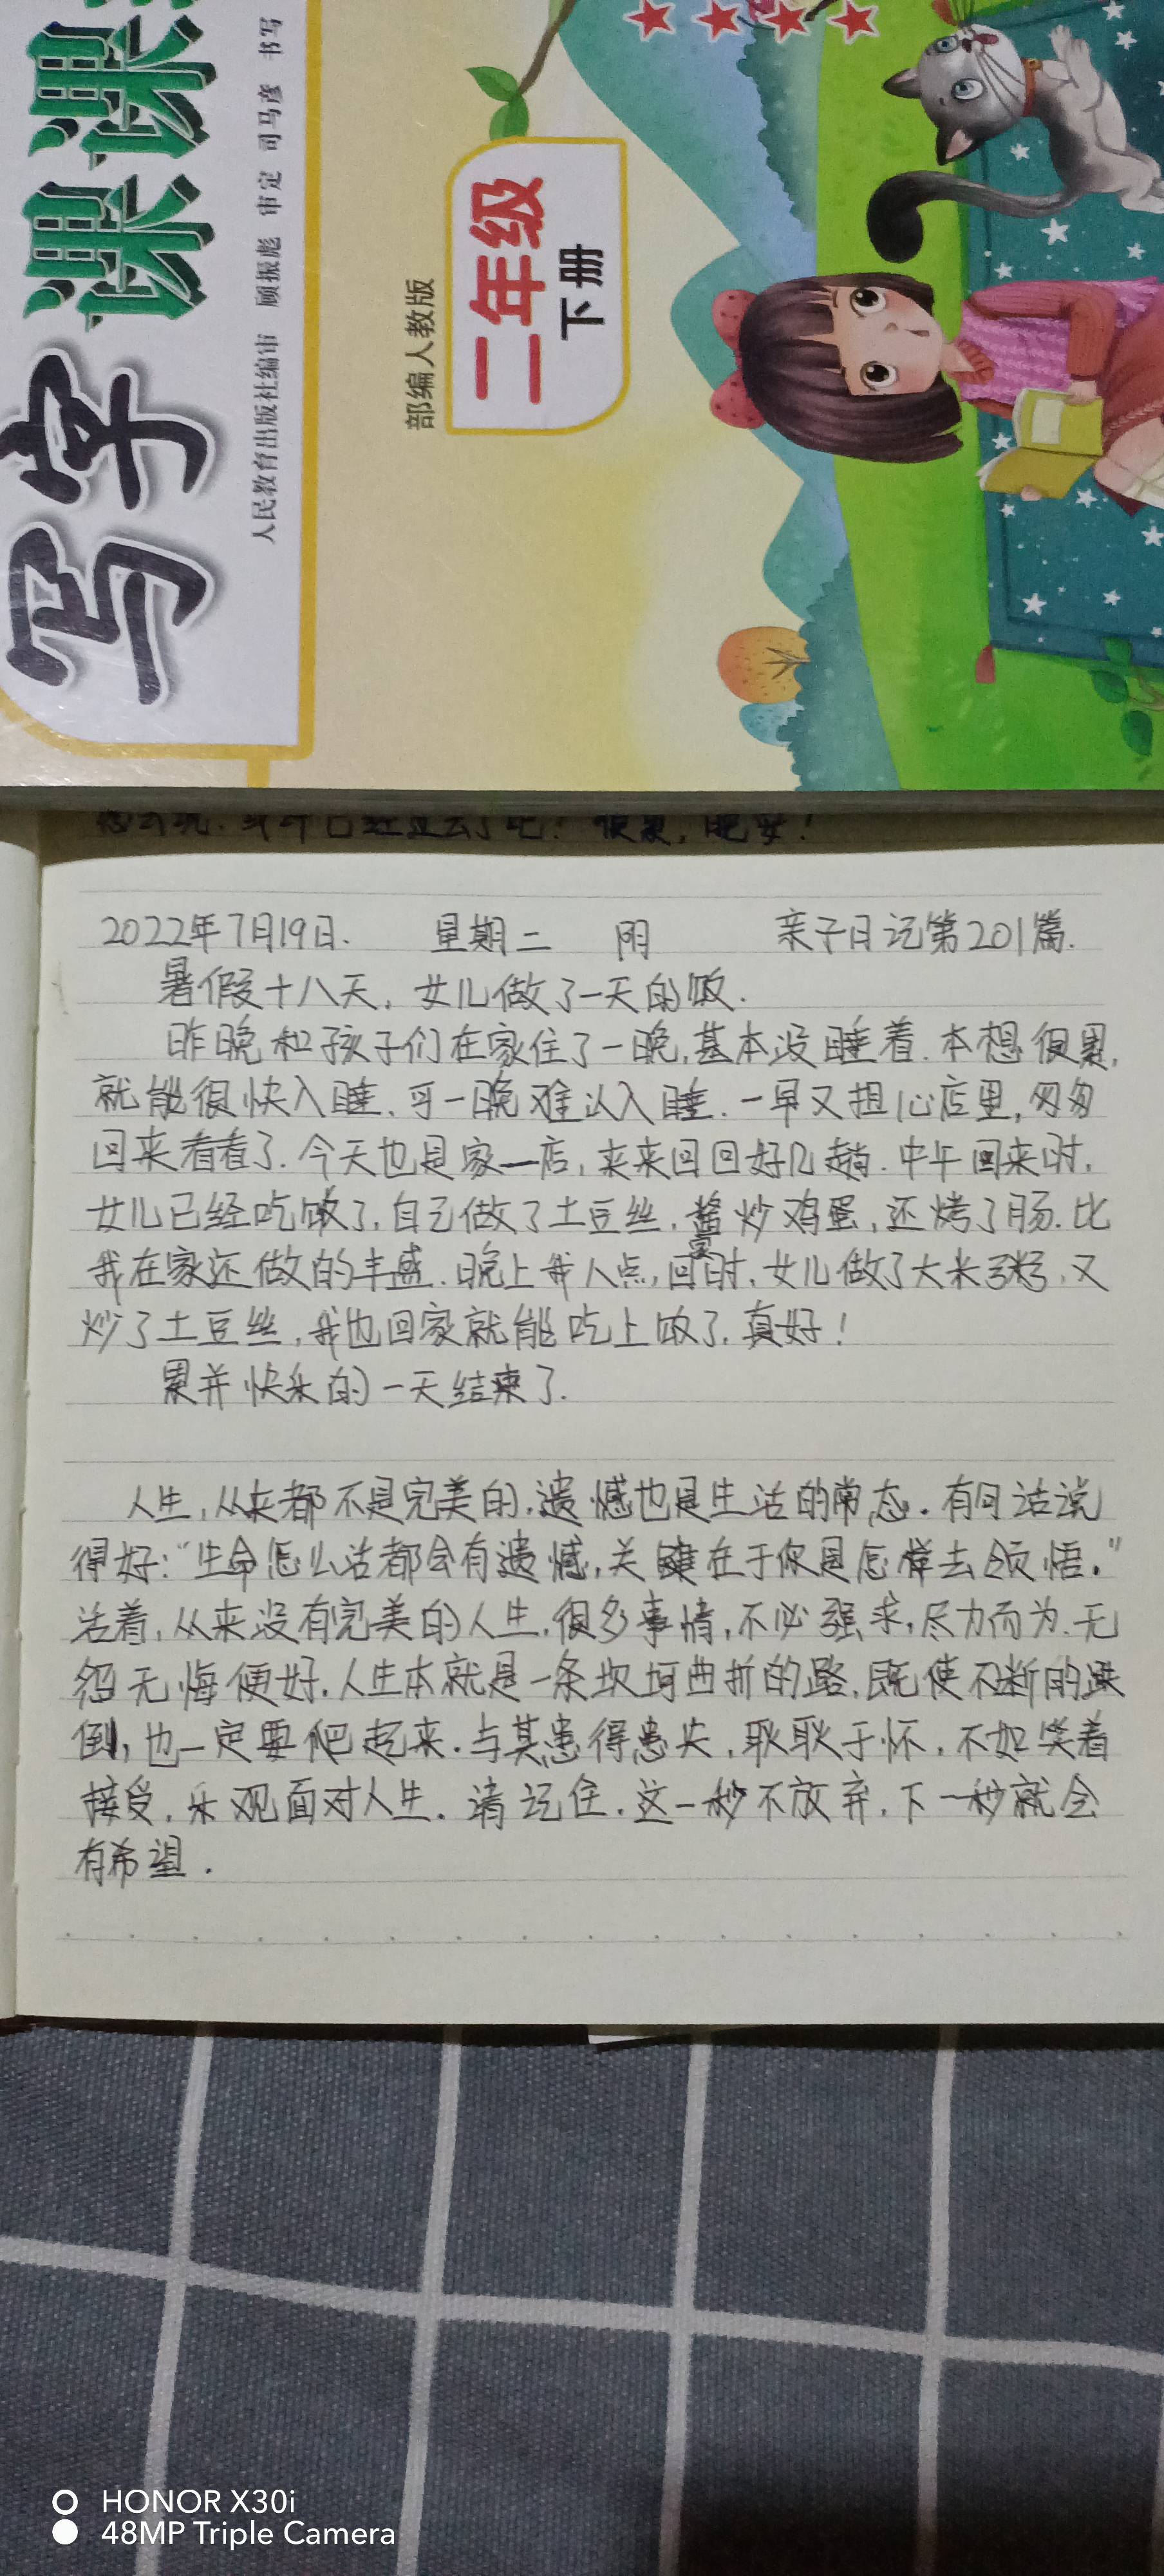 写字课课
人民教育出版社编审 顾振彪 审定 司马彦 书写
部编人教版
二年级
下册
2022年7月19日. 星期二 阴 亲子日记第201篇.
暑假十八天,女儿做了一天的饭.
昨晚和孩子们在家住了一晚,基本没睡着.本想很累,
就能很快入睡、可一晚难以入睡.一早又担心店里,匆匆
回来看看了.今天也是家—店,来来回回好几趟.中午回来时,
女儿已经吃饭了,自己做了土豆丝,酱炒鸡蛋,还烤了肠.比
我在家还做的丰盛.晚上我八点,回家时,女儿做了大米粥,又
炒了土豆丝,我也回家就能吃上饭了,真好!
累并快乐的一天结束了.
人生,从来都不是完美的,遗憾也是生活的常态.有句话说
得好:“生命怎么活都会有遗憾,关键在于你是怎样去领悟.”
活着,从来没有完美的人生,很多事情,不必强求,尽力而为.无
怨无悔便好.人生本就是一条坎坷曲折的路,既使不断的跌
倒,也一定要爬起来.与其患得患失,耿耿于怀,不如笑着
接受,乐观面对人生.请记住.这一秒不放弃.下一秒就会
有希望.
HONOR X30i
48MP Triple Camera